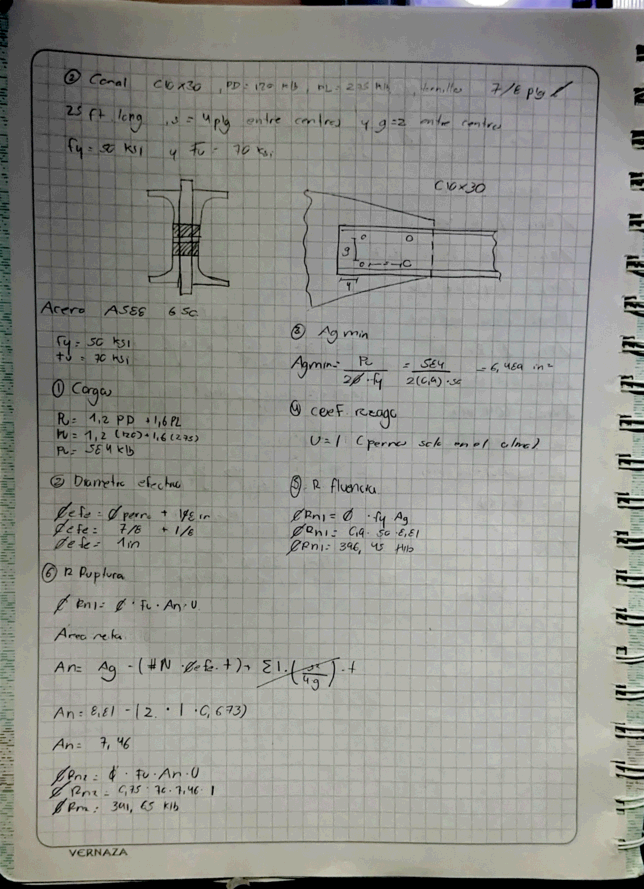 ③ Canal C10x30 , PD = 120 klb , PL = 275 klb , tornillos 7/8 plg
25 ft long , s = 4 plg entre centros y g=2 entre centros
fy = 50 ksi y Fu = 70 ksi
C10x30
g
4"
Acero A588 G 50
fy = 50 ksi
fu = 70 ksi
① Cargas
Pu = 1,2 PD + 1,6 PL
Pu = 1,2 (120) + 1,6 (275)
Pu = 584 klb
② Diametro efectivo
Ø efe = Ø perno + 1/8 in
Ø efe = 7/8 + 1/8
Ø efe = 1 in
③ Ag min
Agmin = Pu / 2Ø·fy = 584 / 2(0,9)·50 = 6,489 in²
④ Coef. rezago
U = 1 (pernos solo en el alma)
⑤ R fluencia
ØRn1 = Ø · fy Ag
ØRn1 = 0,9 · 50 · 8,81
ØRn1 = 396,45 klb
⑥ R Ruptura
Ø Rn1 = Ø · Fu · An · U
Area neta
An = Ag - (#N · Øefe · t) + Σ1 · (s²/4g) · t
An = 8,81 - (2 · 1 · 0,673)
An = 7,46
Ø Rn2 = Ø · Fu · An · U
Ø Rn2 = 0,75 · 70 · 7,46 · 1
Ø Rn2 = 391,65 klb
VERNAZA